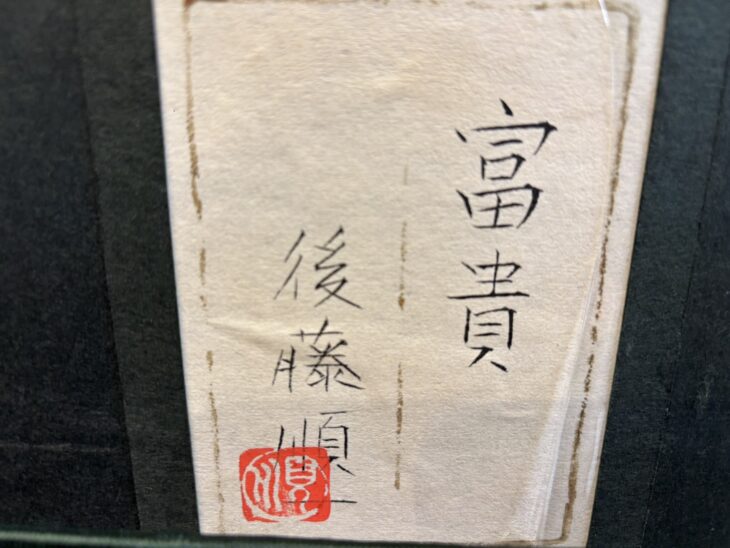 富貴
後藤順一